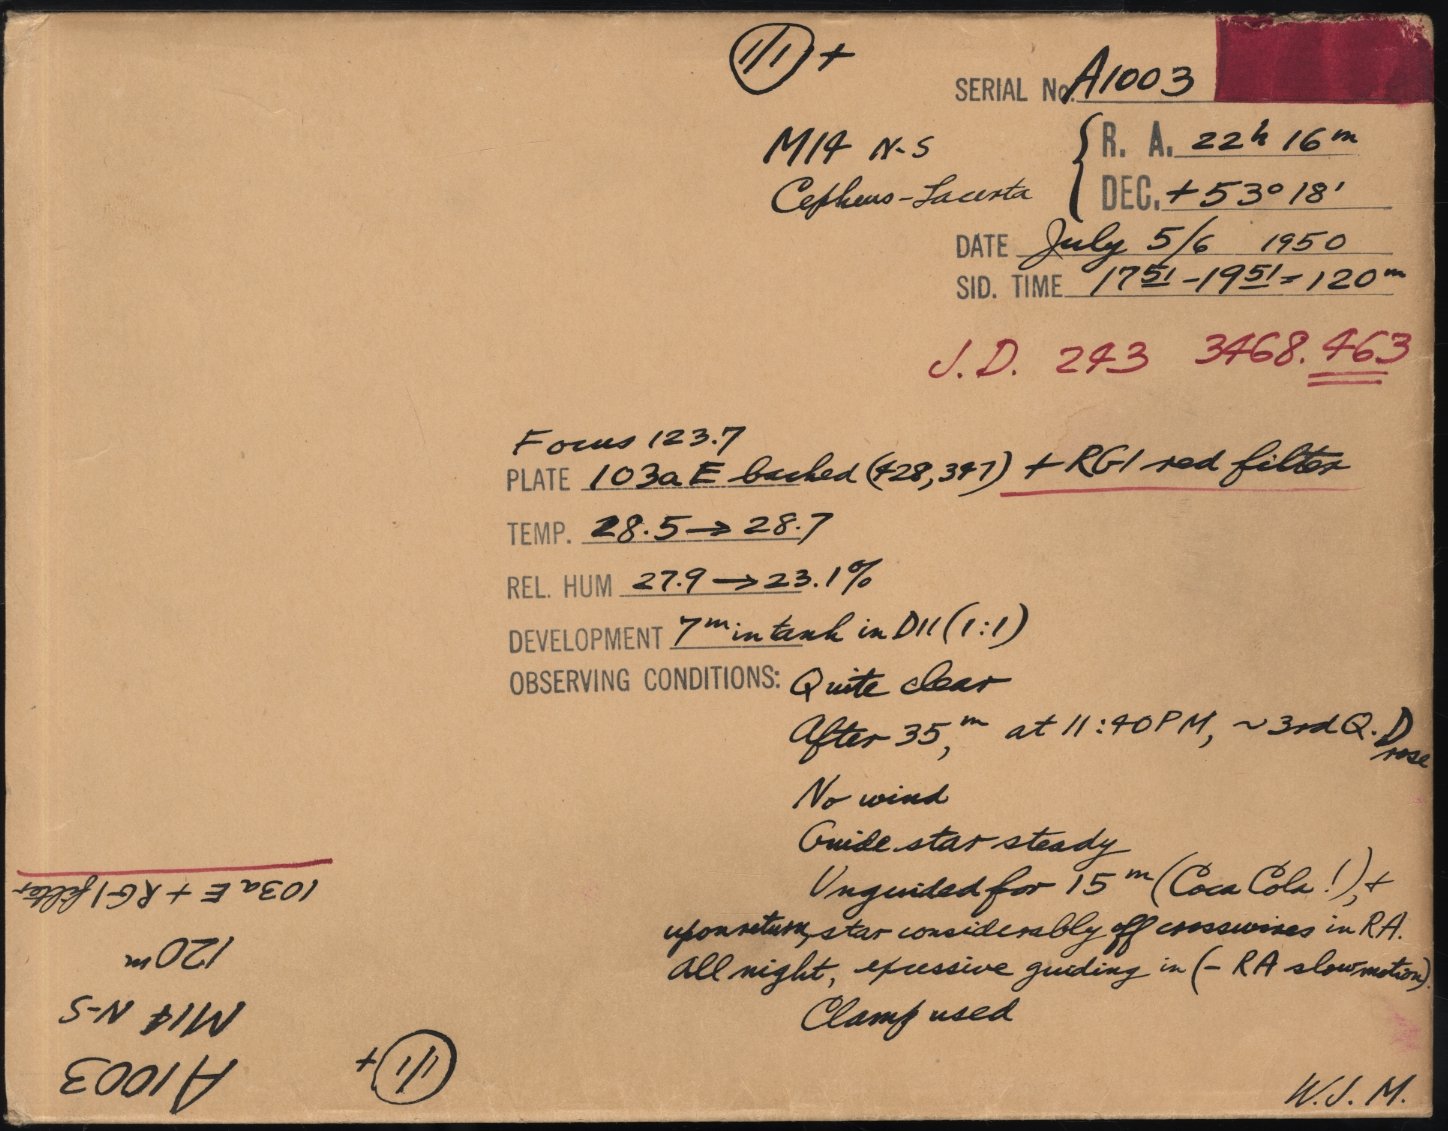 1/1 +
SERIAL No. A1003
M14 N-S
R. A. 22h 16m
Cepheus-Lacerta
DEC. +53° 18'
DATE July 5/6 1950
SID. TIME 1751 - 1951 = 120m
J.D. 243 3468.463
Focus 123.7
PLATE 103a E backed (428,347) + RG1 red filter
TEMP. 28.5 → 28.7
REL. HUM 27.9 → 23.1%
DEVELOPMENT 7m in tank in D11 (1:1)
OBSERVING CONDITIONS: Quite clear
After 35m, at 11:40 PM, ~3rd Q. D rose
No wind
Guide star steady
Unguided for 15m (Coca Cola!), +
upon return, star considerably off crosswires in RA.
All night, excessive guiding in (- RA slow motion).
Clamp used
W.J.M.
1/1 +
A1003
M14 N-S
120m
103a E + RG1 filter